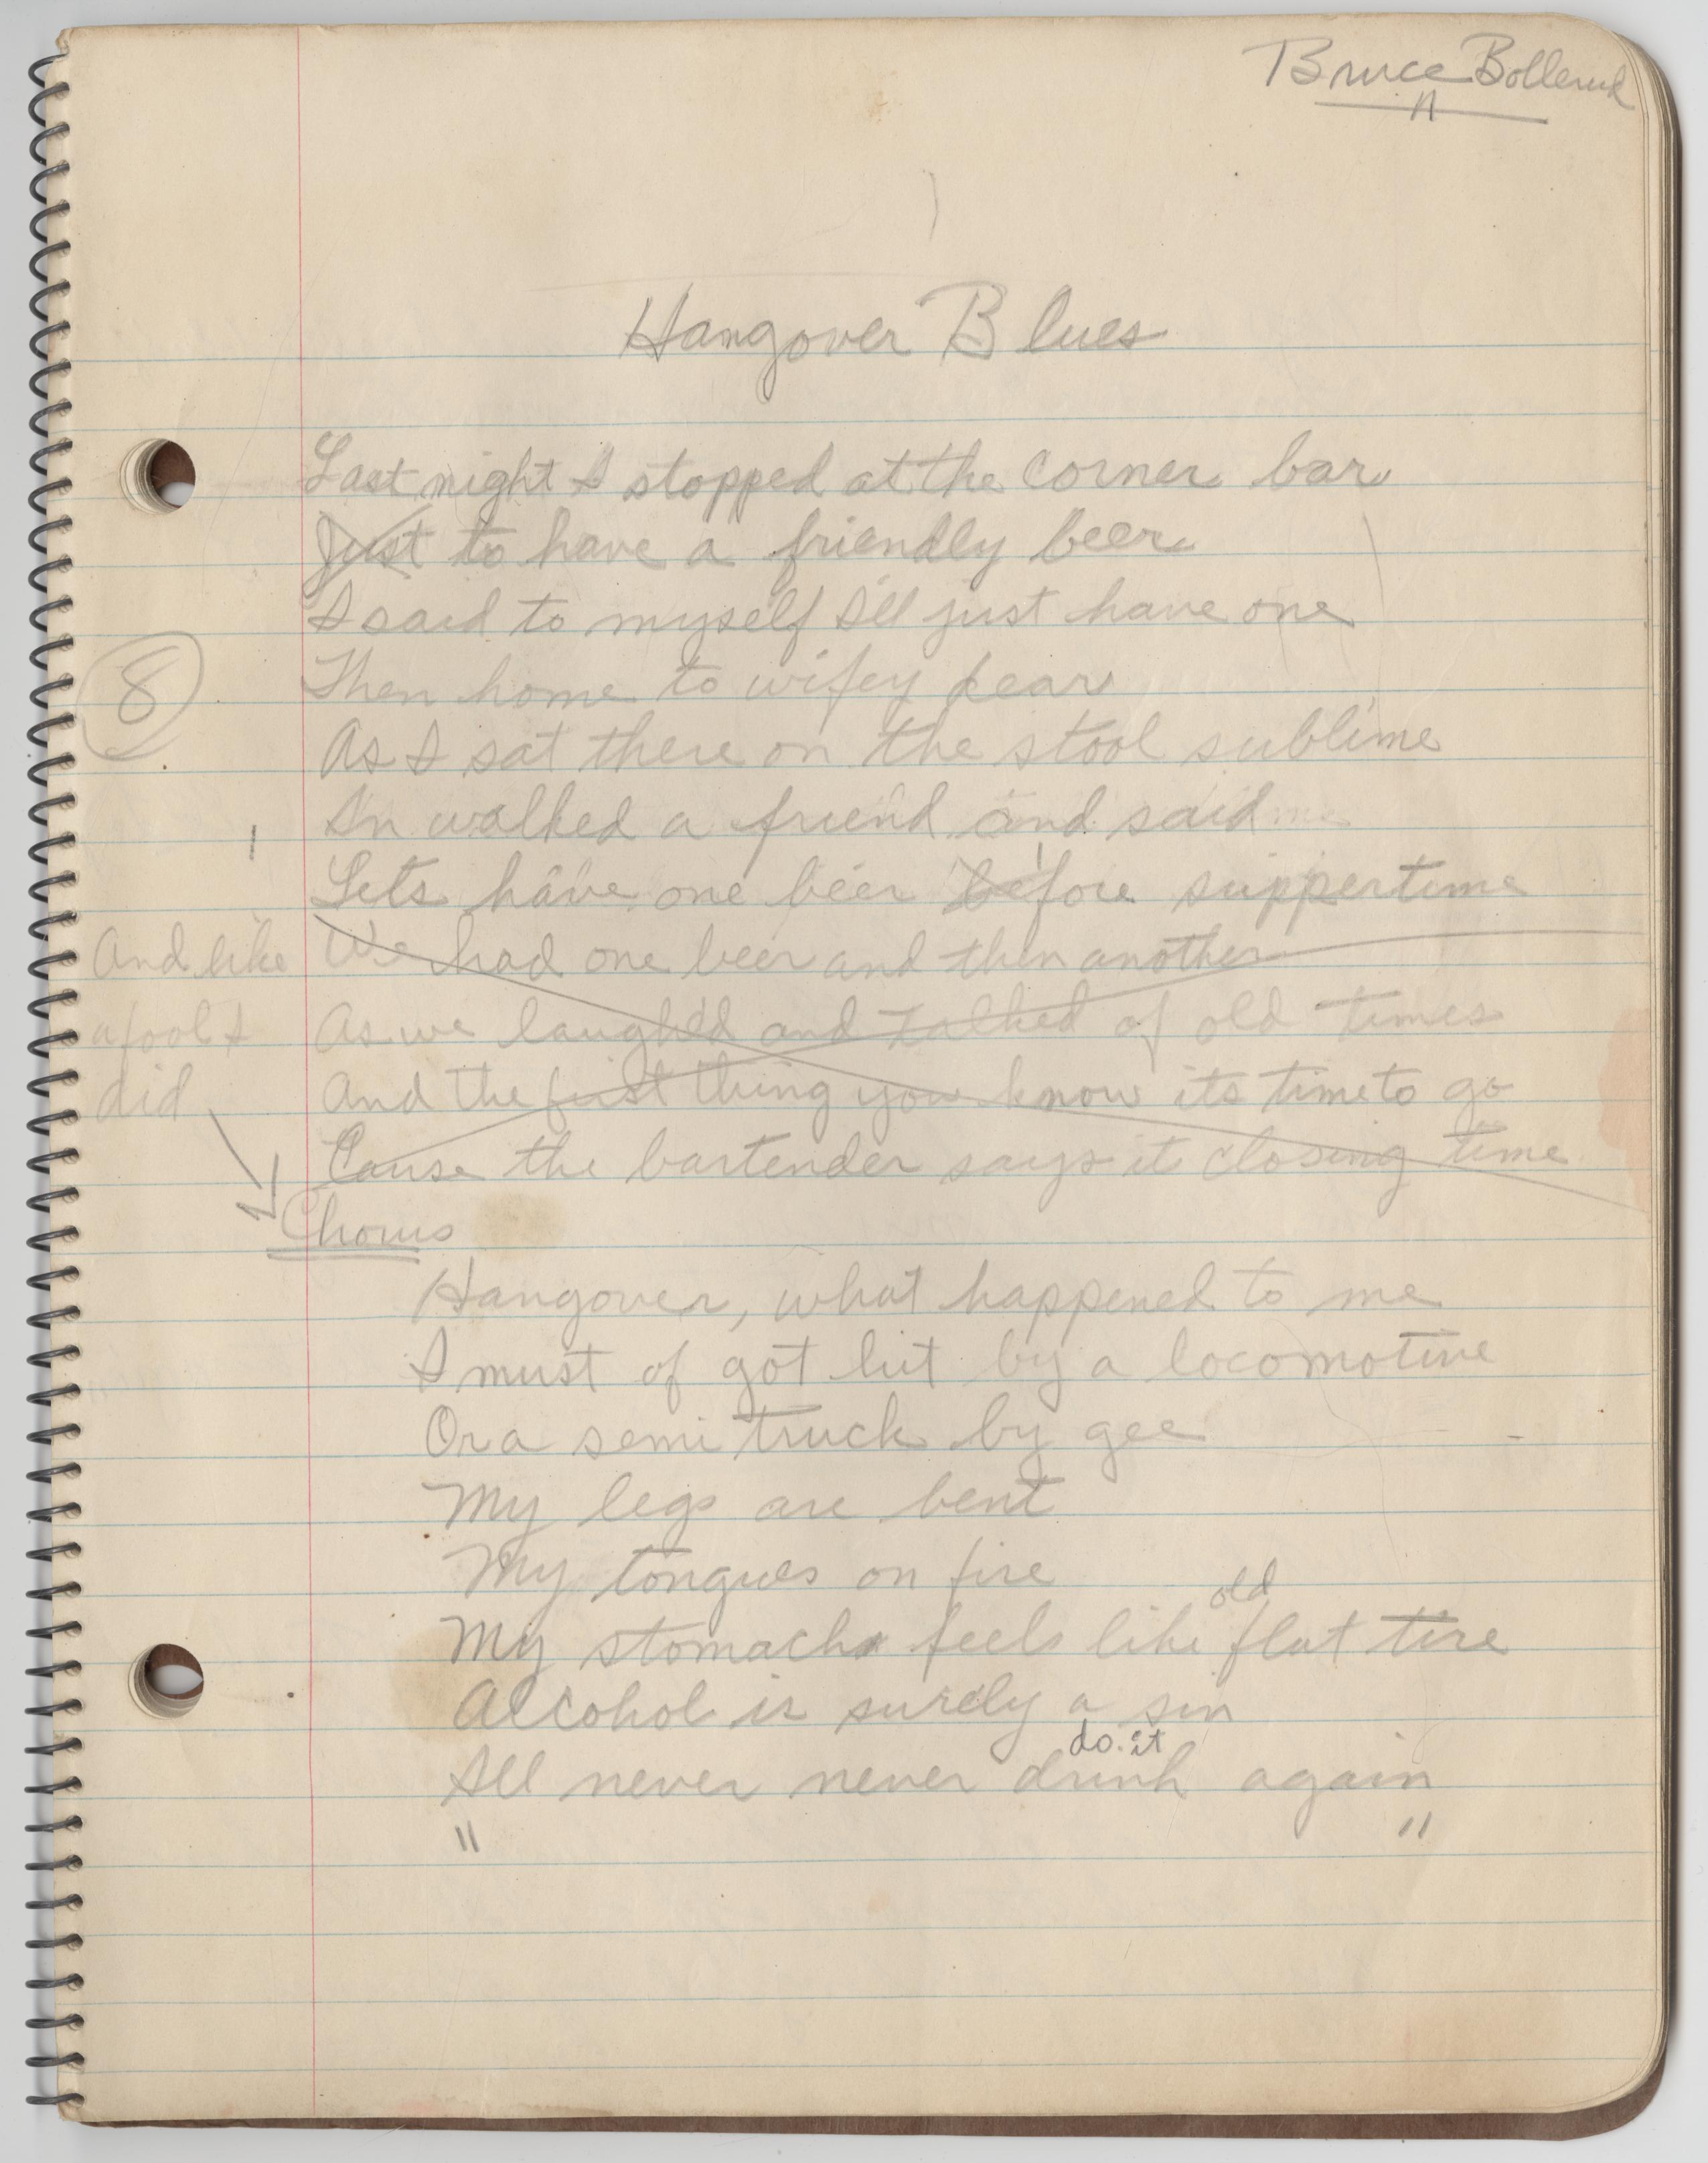 Bruce Bollerud
Hangover Blues
Last night I stopped at the corner bar
Just to have a friendly beer
I said to myself I'll just have one
Then home to wifey dear
8
As I sat there on the stool sublime
In walked a friend and said
Lets have one beer before suppertime
And like
a fool I
did
We had one beer and then another
As we laugh'd and talked of old times
And the first thing you know its time to go
Cause the bartender says its closing time
Chorus
Hangover, what happened to me
I must of got hit by a locomotive
Or a semi truck by gee
My legs are bent
My tongues on fire
old
My stomach feels like flat tire
Alcohol is surely a sin
do it
I'll never never drink again
" "